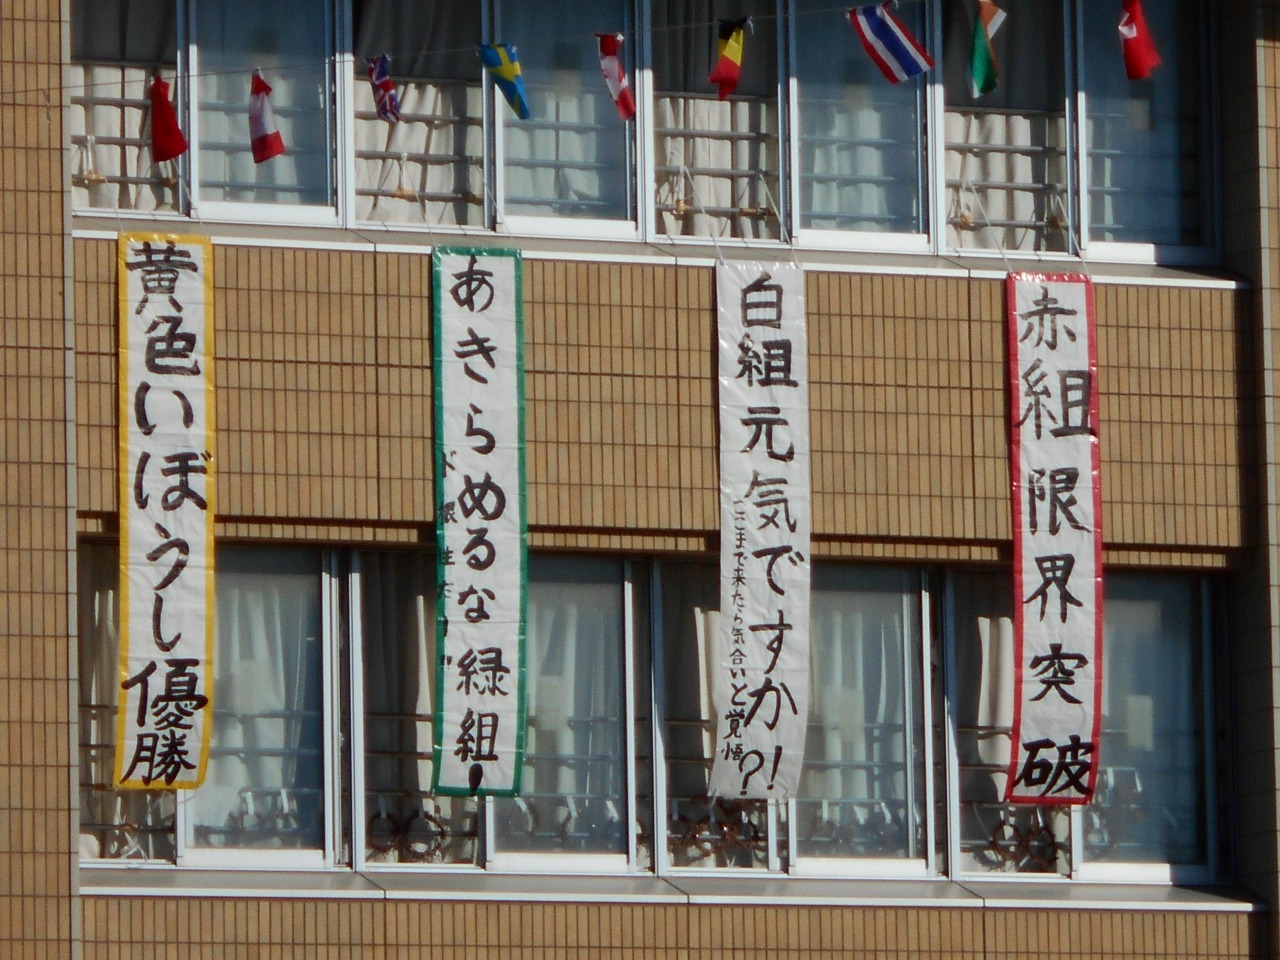 赤組限界突破
白組元気ですか?!
ここまで来たら気合いと覚悟
あきらめるな緑組!
ド根性だー!!
黄色いぼうし優勝